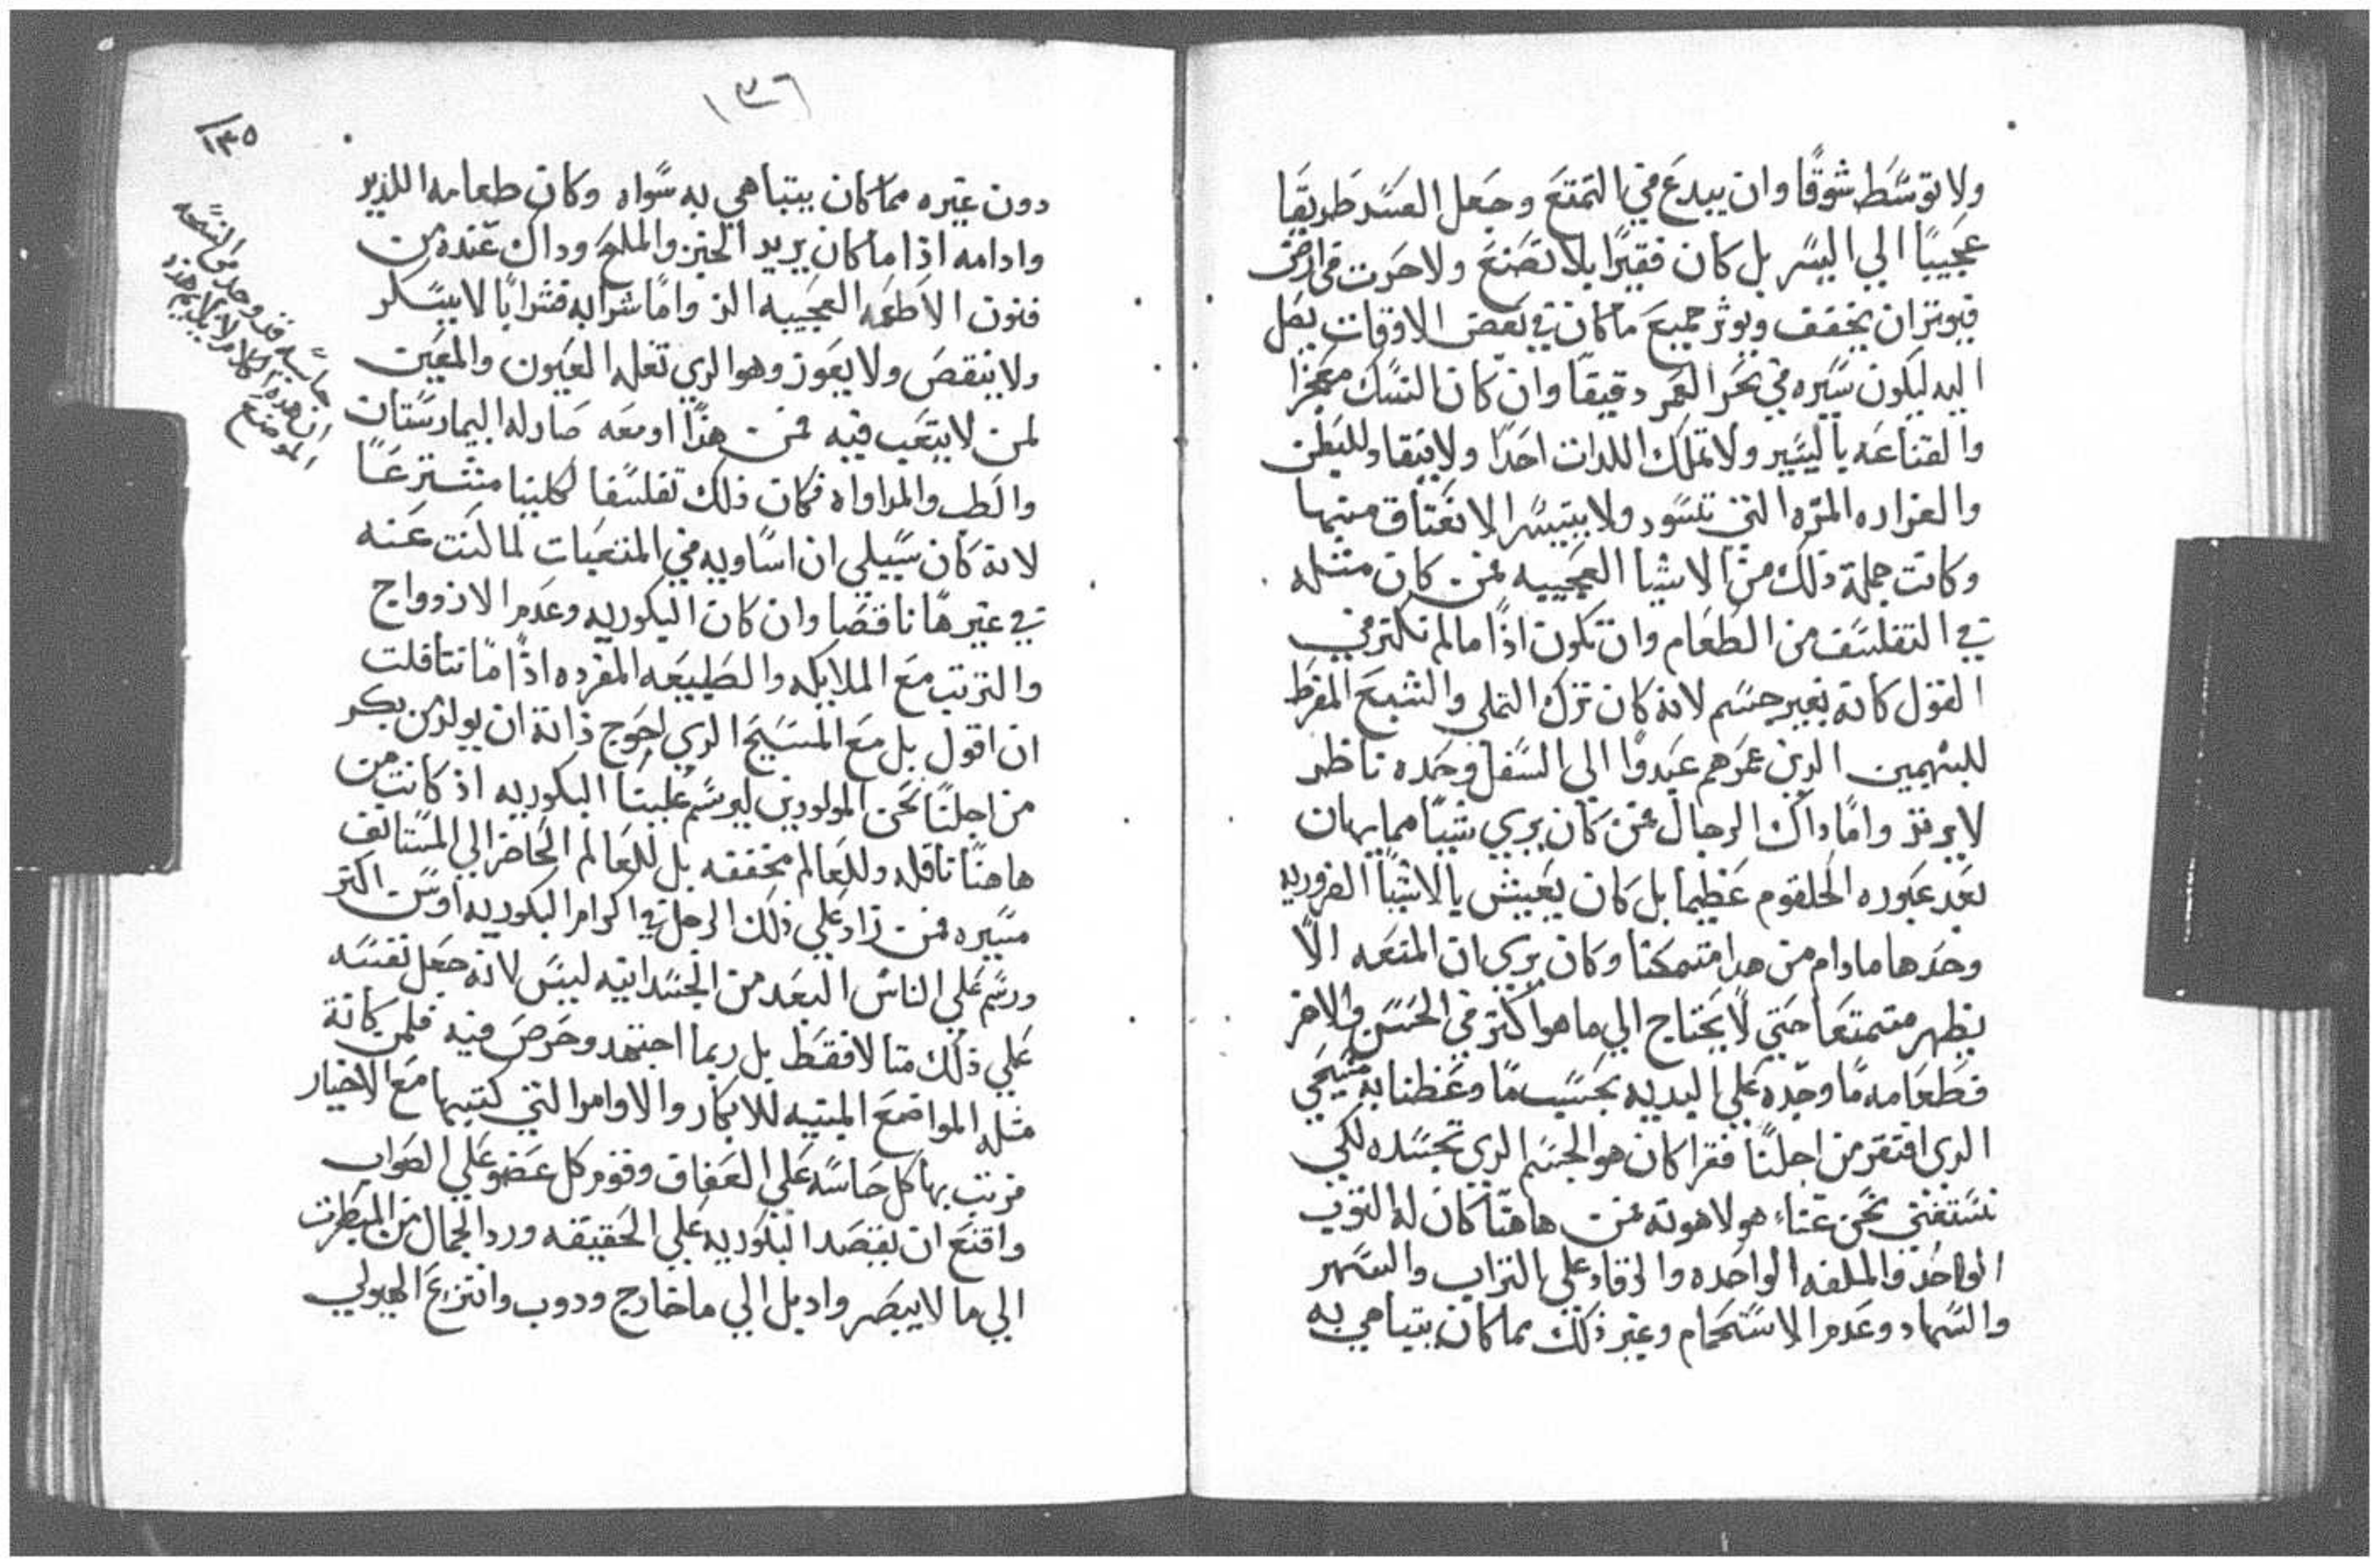 ولا توسَط شوقًا وان يبدعَ في التمتعَ وجَعل العسَد طَريقَا
عجَيبًا الي اليسَر بل كان فقيرًا بلا تصَنعَ ولا حَرت في ارض
فيوتر ان يخفف ويوثر جميعَ ما كان في بَعض الاوقات يصَل
اليه ليكون سَيره في بحَر العمَر دقيقًا وان كان النسَك معجَزا
والقناعَه باليسَير ولا تملك اللدات احَدًا ولا ينقاد للبَطن
والعزاره المرّه التي تسَود ولا يتيسَر الانعَتاق منها
وكانت جملة ذلك من الاشيا العجَيبه فمن كان مثله
في التفلسَف من الطَعام وان تكون اذًا ما لم نكتر في
القول كانة بغير جسَم لانه كان ترك التملي والشبعَ المفرطَ
للبهمين الدين عمَرهم عَبدوا الي السَفل وحَده ناظر
لا يرتز وامًا داك الرجال فمن كان يري شيئًا مما يهان
بعَد عبَوره الحلقوم عَظيما بل كان يعَيش بالاشيا الضروريه
وحَدها ما دام من هدا متمكنا وكان يري ان المتعَه الًا
يظهر متمتعَا حَتي لا يحَتاج الي ما هو اكتر في الحَسَن والاخر
فطَعَامه مًا وجَده عَلي اليديه بحَسَب مًا وعَظنا به مسَيحَي
الدي افتقر من اجلنًا فقرا كان هو الجسَم الدي تجسَده لكي
نسَتغني نحَن عنًاء هو لاهوته فمن هاهنًا كان له التوب
الواحَد والملفه الواحَده والرقاد علي التراب والسَهر
والسَهاد وعَدم الاسَتحَمام وغير ذلك مما كان يتباهي به
١٣٦
١٣٥
دون غيره مما كان يتباهي به سَواه وكان طعامه اللديد
وادامه اذا ما كان يريد الخبز والملحَ وداك عَنده من
فنون الاطَعمَه العجَيبه الد وامًا شرابه فشرابًا لا يسَكر
ولا ينقصَ ولا يعَوز وهو الدي تعَله العَيون والمعَين
لمن لا يتعَب فيه فمن هذًا اومعَه صَار له البيمارسَتان
والطَب والمداواه فكان ذلك تفلسَفا كلينيا متشترعًا
لانة كان سَبيلي ان اسَاويه في المتعَبات لما كنت عَنه
في غيرها ناقصَا وان كان البكوريه وعَدم الازدواج
والترتب معَ الملايكه والطَبيعَه المفرده اذًا مًا تتاقلت
ان اقول بل معَ المسَيحَ الدي احَوج ذاتة ان يولد من بكر
من اجلنًا نحَن المولودين ليرسَم عَلينا البكوريه اذ كانت من
هاهنًا ناقله وللعَالم مخففه بل للعَالم الحَاضر الي المسَتانف
مسَيره فمن زاد عَلي ذلك الرجل في اكرام البكوريه او سَن اكتر
ورسَم عَلي الناس البعَد من الجسَدانيه ليسَ لانه جعَل نفسَه
عَلي ذلك متالا فقطَ بل ربما اجتهد وحَرصَ فيه فلمن كانة
مثله المواضعَ المبنيه للابكار والاوامر التي كتبها معَ الاخيار
فرتب بها كل حَاسَه عَلي العَفاف وقوم كل عَضو عَلي الصَواب
واقنعَ ان يقصَد البكوريه عَلي الحَقيقه ورد الجمال من المبَطرت
الي ما لا يبصَر واديل الي ما خارج ودوب وانتزعَ الهيولي
حَاسَيه قد وجد من النسَخه
ان هده الكلام
الموضع